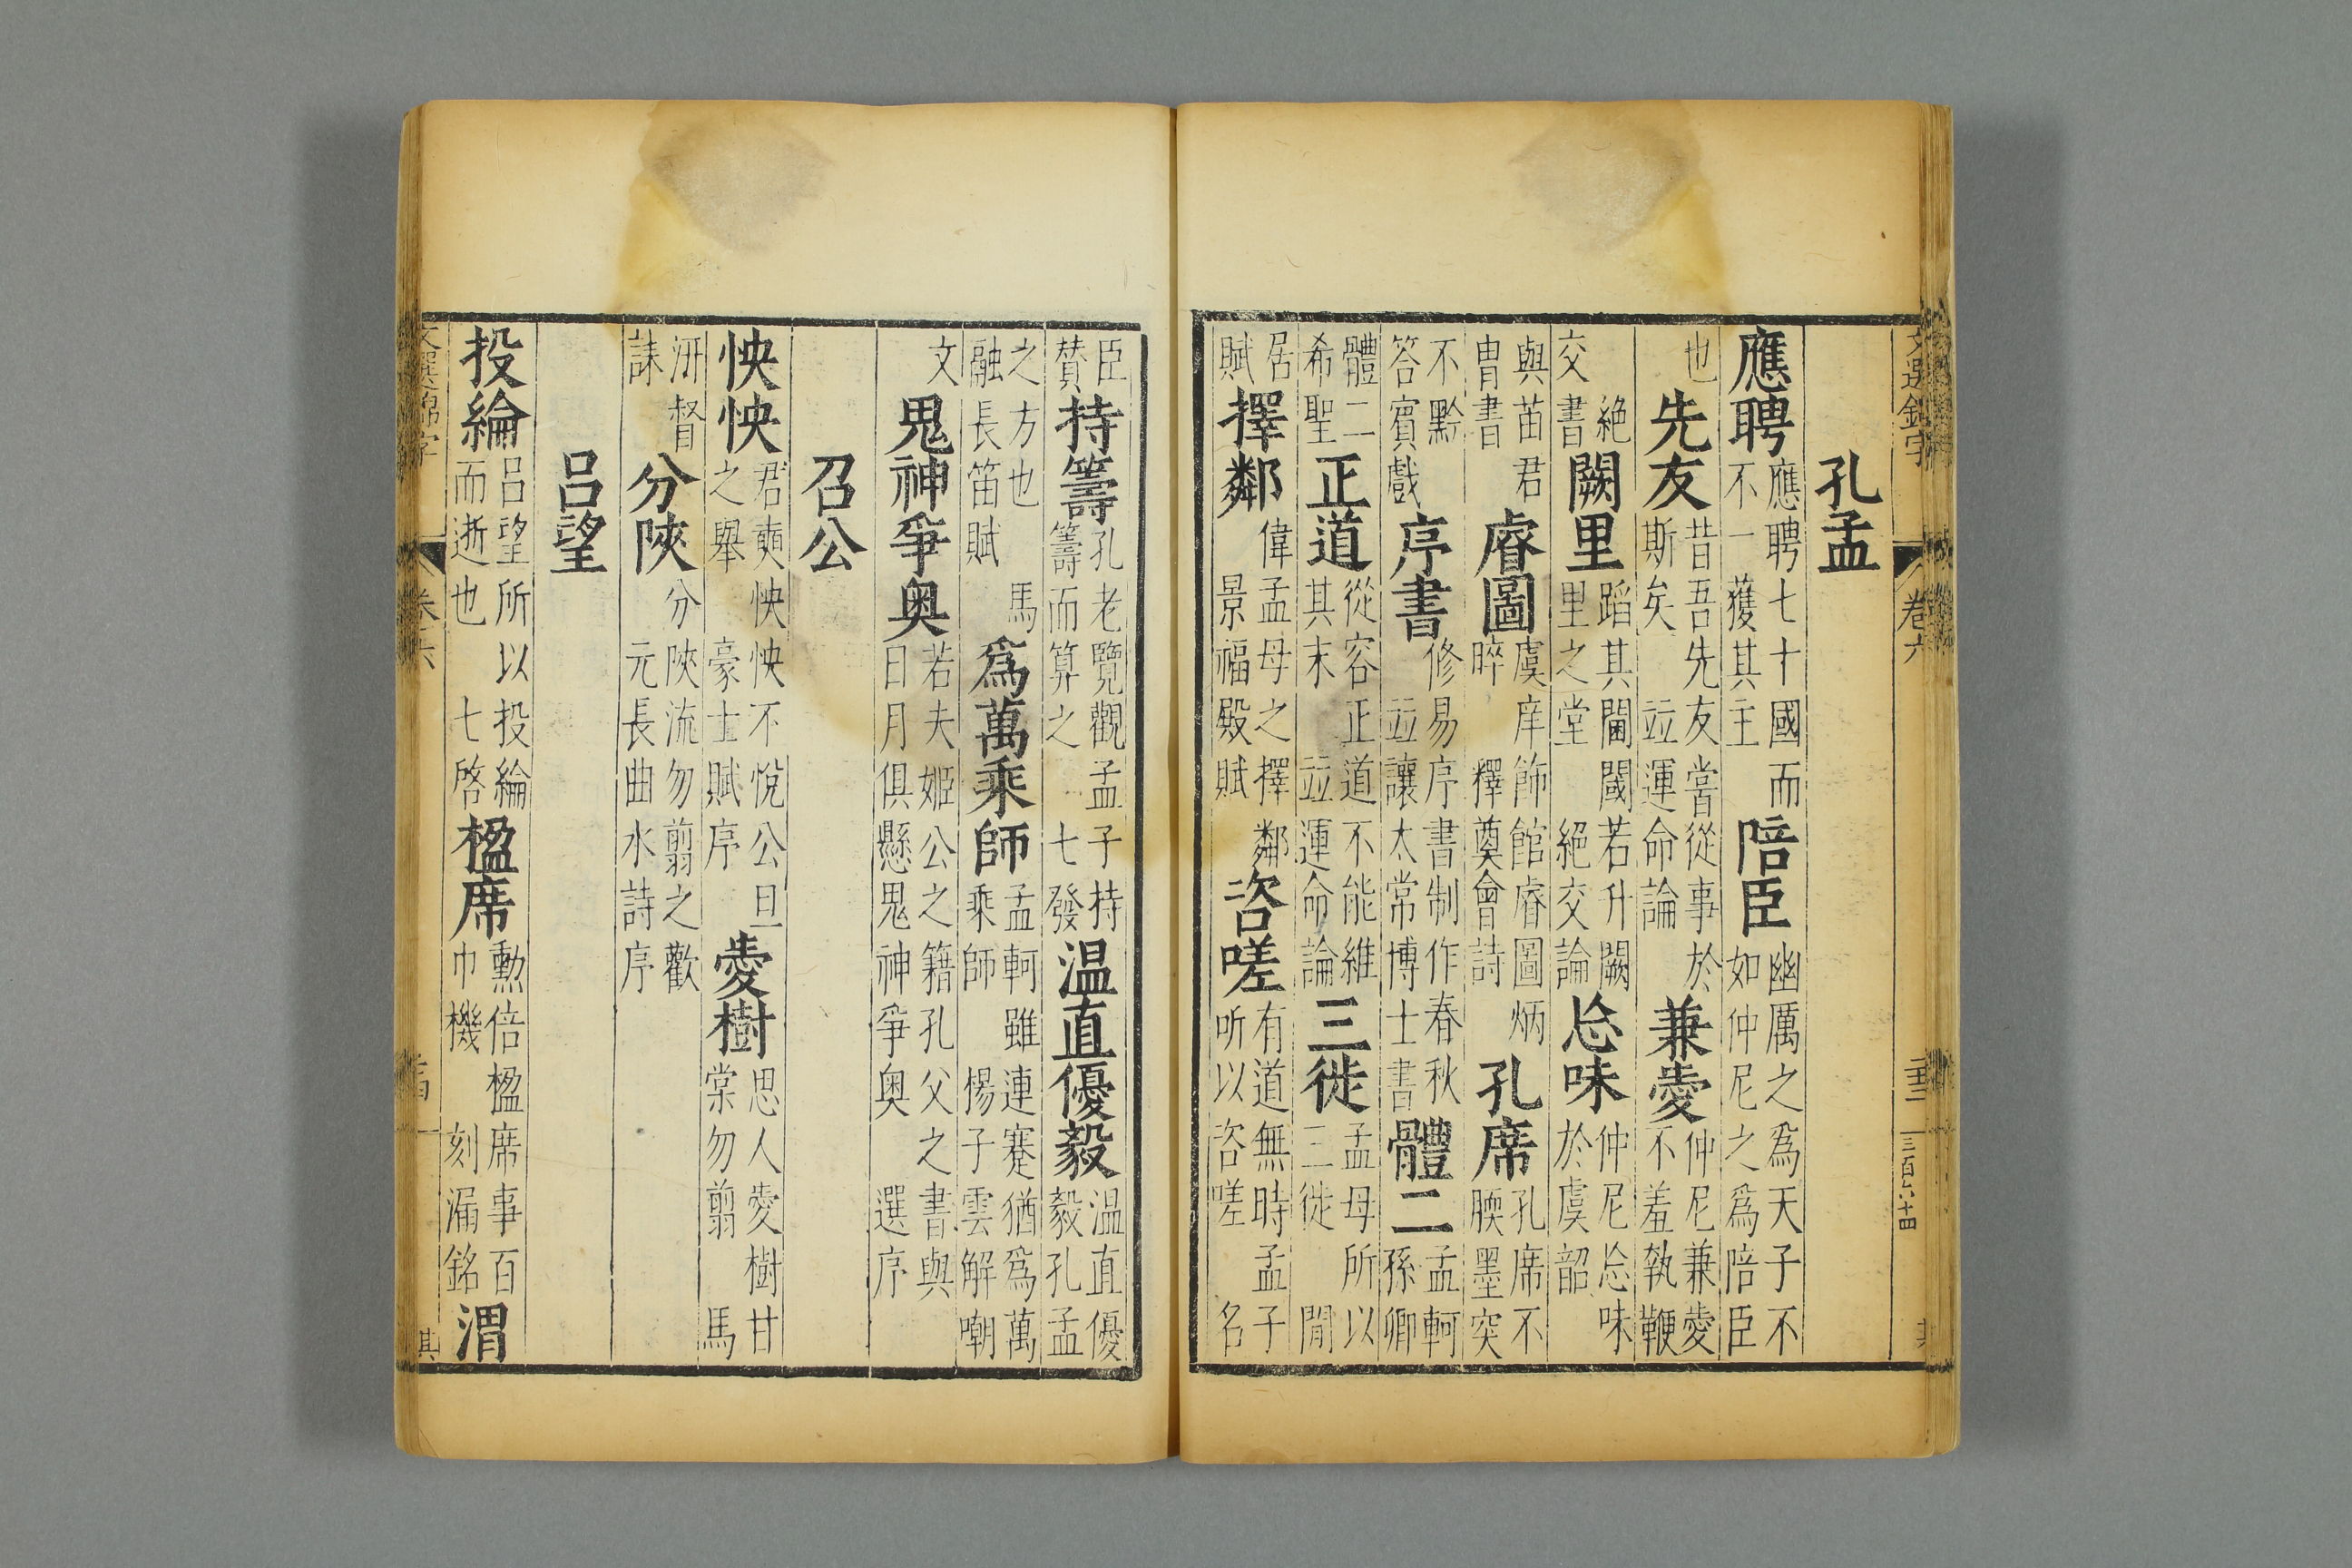 孔孟
應聘應聘七十國而不一獲其主陪臣幽厲之為天子不如仲尼之為陪臣
也先友昔吾先友嘗從事於斯矣 竝運命論兼愛仲尼兼愛不羞執鞭
絶交書闕里蹈其閫閾若升闕里之堂 絶交論忩味仲尼忩味於虞韶
與苗君冑書睿圖虞庠飾館睿圖炳晬 釋奠會詩孔席孔席不腝墨突
不黔答賓戲序書修易序書制作春秋 竝讓太常博士書體二孟軻孫卿
體二希聖正道從容正道不能維其末 竝運命論三徙孟母所以三徙 閒
居賦擇鄰偉孟母之擇鄰 景福殿賦咨嗟有道無時孟子听以咨嗟 名
臣贊持籌孔老覽觀孟子持籌而算之 七發温直優毅温直優毅孔孟
之方也 馬融長笛賦為萬乘師孟軻雖連蹇猶為萬乘師 楊子雲解嘲
文鬼神爭奥若夫姬公之籍孔父之書與日月俱懸鬼神爭奥 選序
召公
怏怏君奭怏怏不悅公旦之舉 豪士賦序愛樹思人愛樹甘棠勿翦 馬
汧督誄分陜分陜流勿翦之歡 元長曲水詩序
呂望
投綸呂望所以投綸而逝也 七啓楹席勲倍楹席事百巾機 刻漏銘渭
文選錦字
卷六
三百六十四